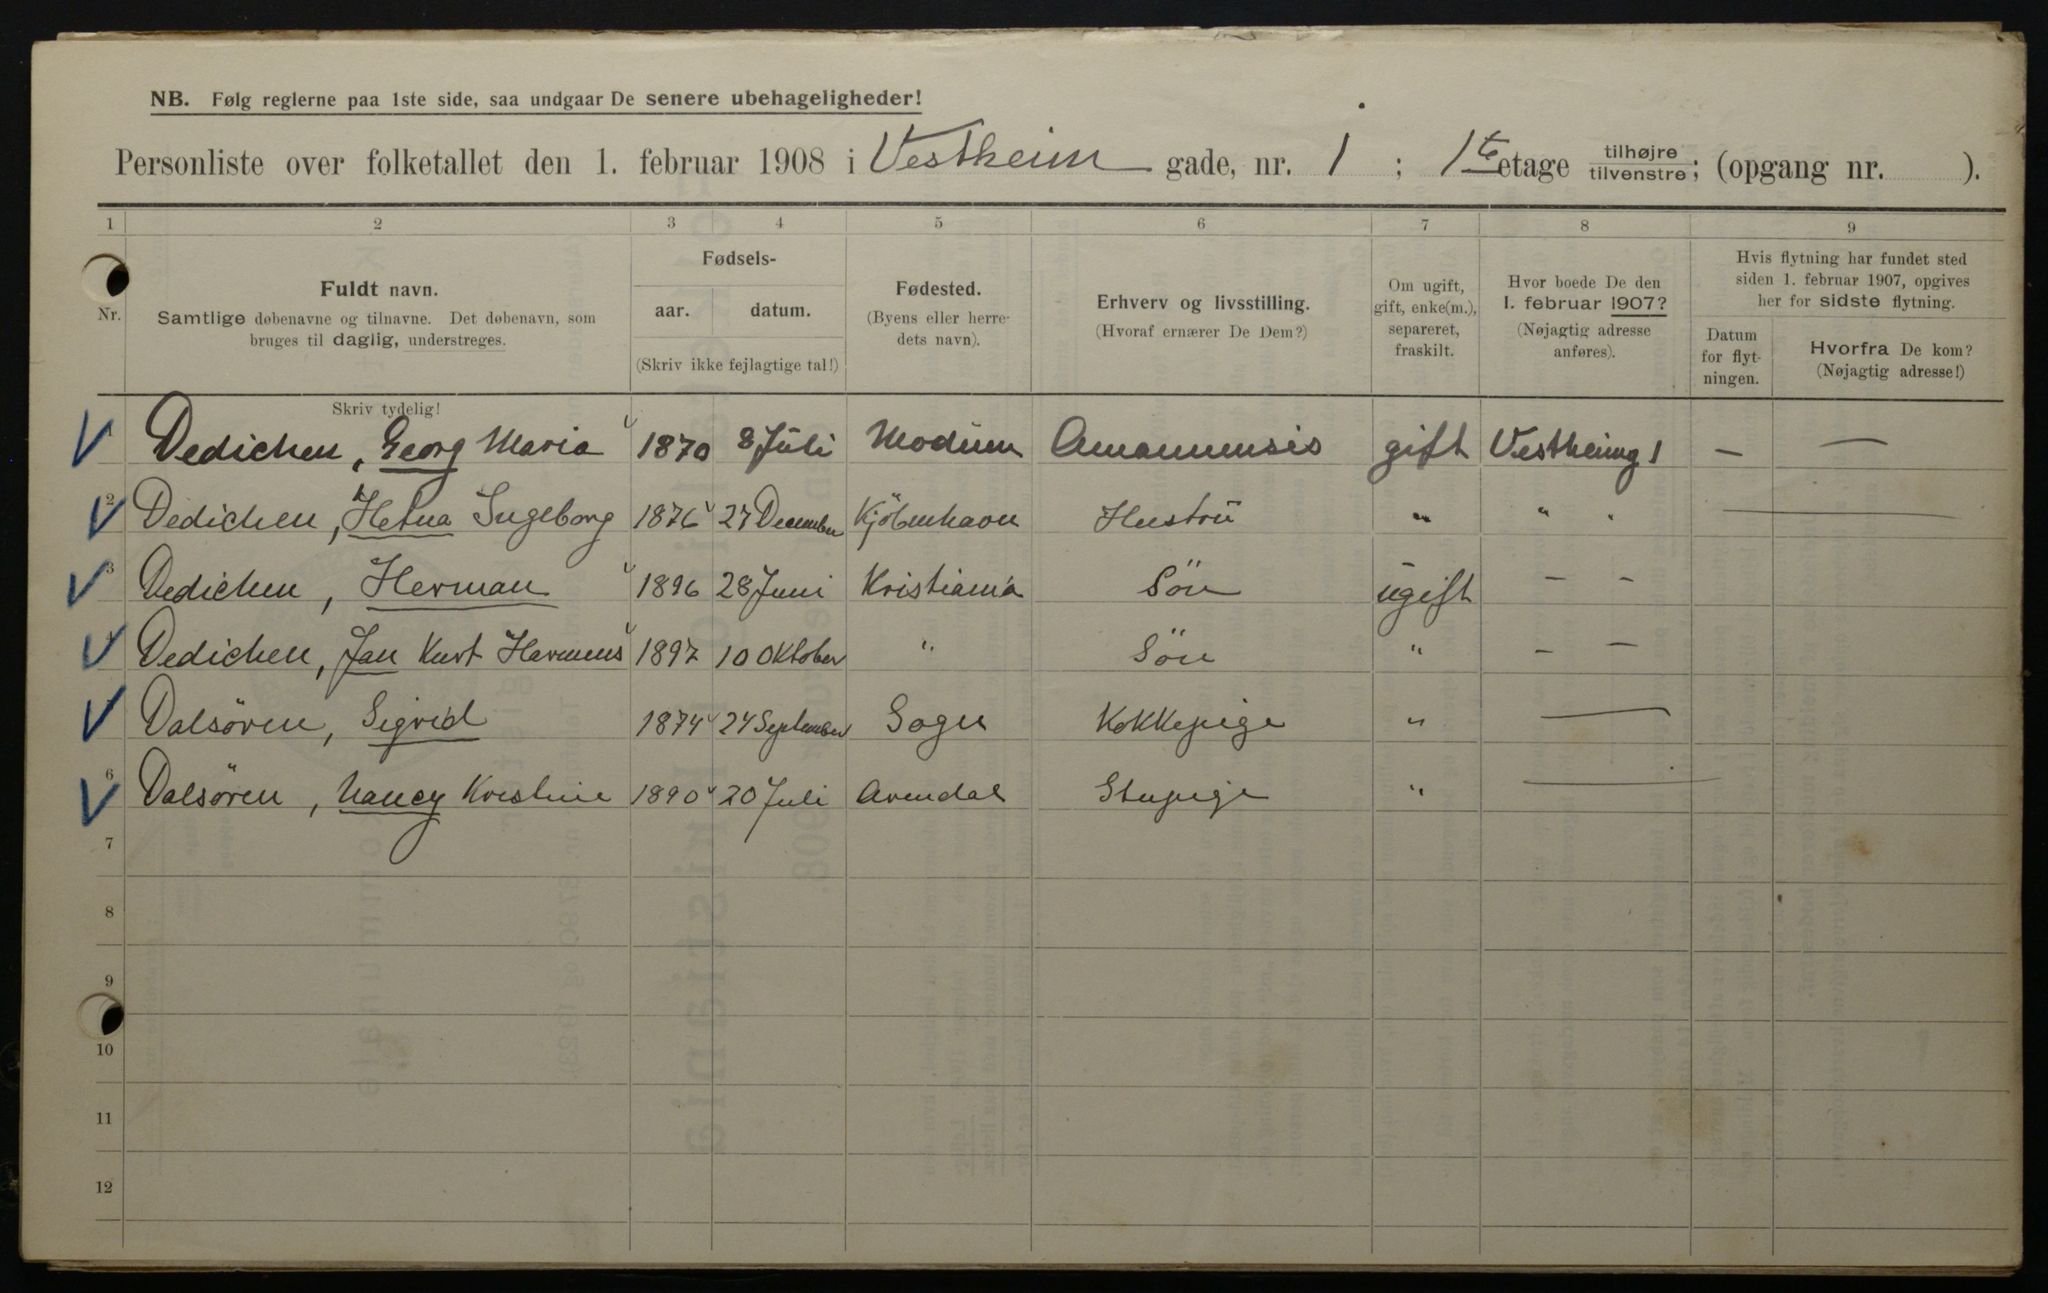 NB. Følg reglerne paa 1ste side, saa undgaar De senere ubehageligheder!
Personliste over folketallet den 1. februar 1908 i Vestheim gade, nr. 1 ; 1ste etage tilhøjre tilvenstre; (opgang nr. ).
1 2 3 4 5 6 7 8 9
Nr.
Fuldt navn.
Samtlige døbenavne og tilnavne. Det døbenavn, som
bruges til daglig, understreges.
Skriv tydelig!
Fødsels-
aar. datum.
(Skriv ikke fejlagtige tal!)
Fødested.
(Byens eller herre-
dets navn).
Erhverv og livsstilling.
(Hvoraf ernærer De Dem?)
Om ugift,
gift, enke(m.),
separeret,
fraskilt.
Hvor boede De den
1. februar 1907?
(Nøjagtig adresse
anføres).
Hvis flytning har fundet sted
siden 1. februar 1907, opgives
her for sidste flytning.
Datum
for flyt-
ningen.
Hvorfra De kom?
(Nøjagtig adresse!)
1 Dedichen, Georg Maria 1870 8 Juli Modum Amanuensis gift Vestheimg 1 — —
2 Dedichen, Ingeborg 1876 27 December Kjöbenhavn Hustru " " "
3 Dedichen, Herman 1896 28 Juni Kristiania Sön ugift — —
4 Dedichen, Jan Kurt Hermens 1897 10 Oktober " Sön " — —
Dalsören, Sigrid 1874 24 September Sogn Kokkepige " —
6 Dalsören, Nancy Kristine 1890 20 Juli Arendal Stupige " —
7
8
9
10
11
12